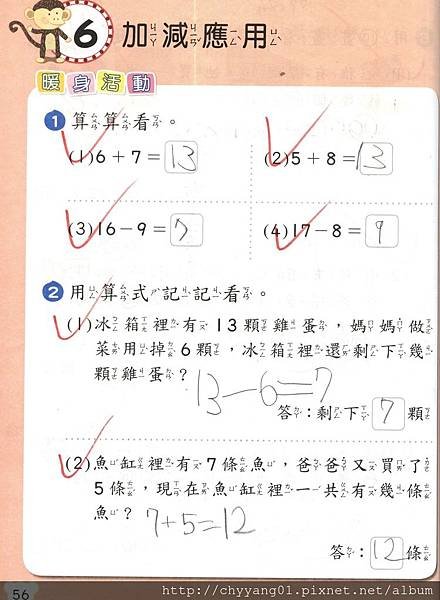 6 加減應用
暖身活動
1 算算看。
(1)6+7=13
(2)5+8=13
(3)16-9=7
(4)17-8=9
2 用算式記記看。
(1)冰箱裡有13顆雞蛋,媽媽做
菜用掉6顆,冰箱裡還剩下幾
顆雞蛋?
13-6=7
答:剩下7顆
(2)魚缸裡有7條魚,爸爸又買了
5條,現在魚缸裡一共有幾條
魚?
7+5=12
答:12條
56
http://chyyang01.pixnet.net/album